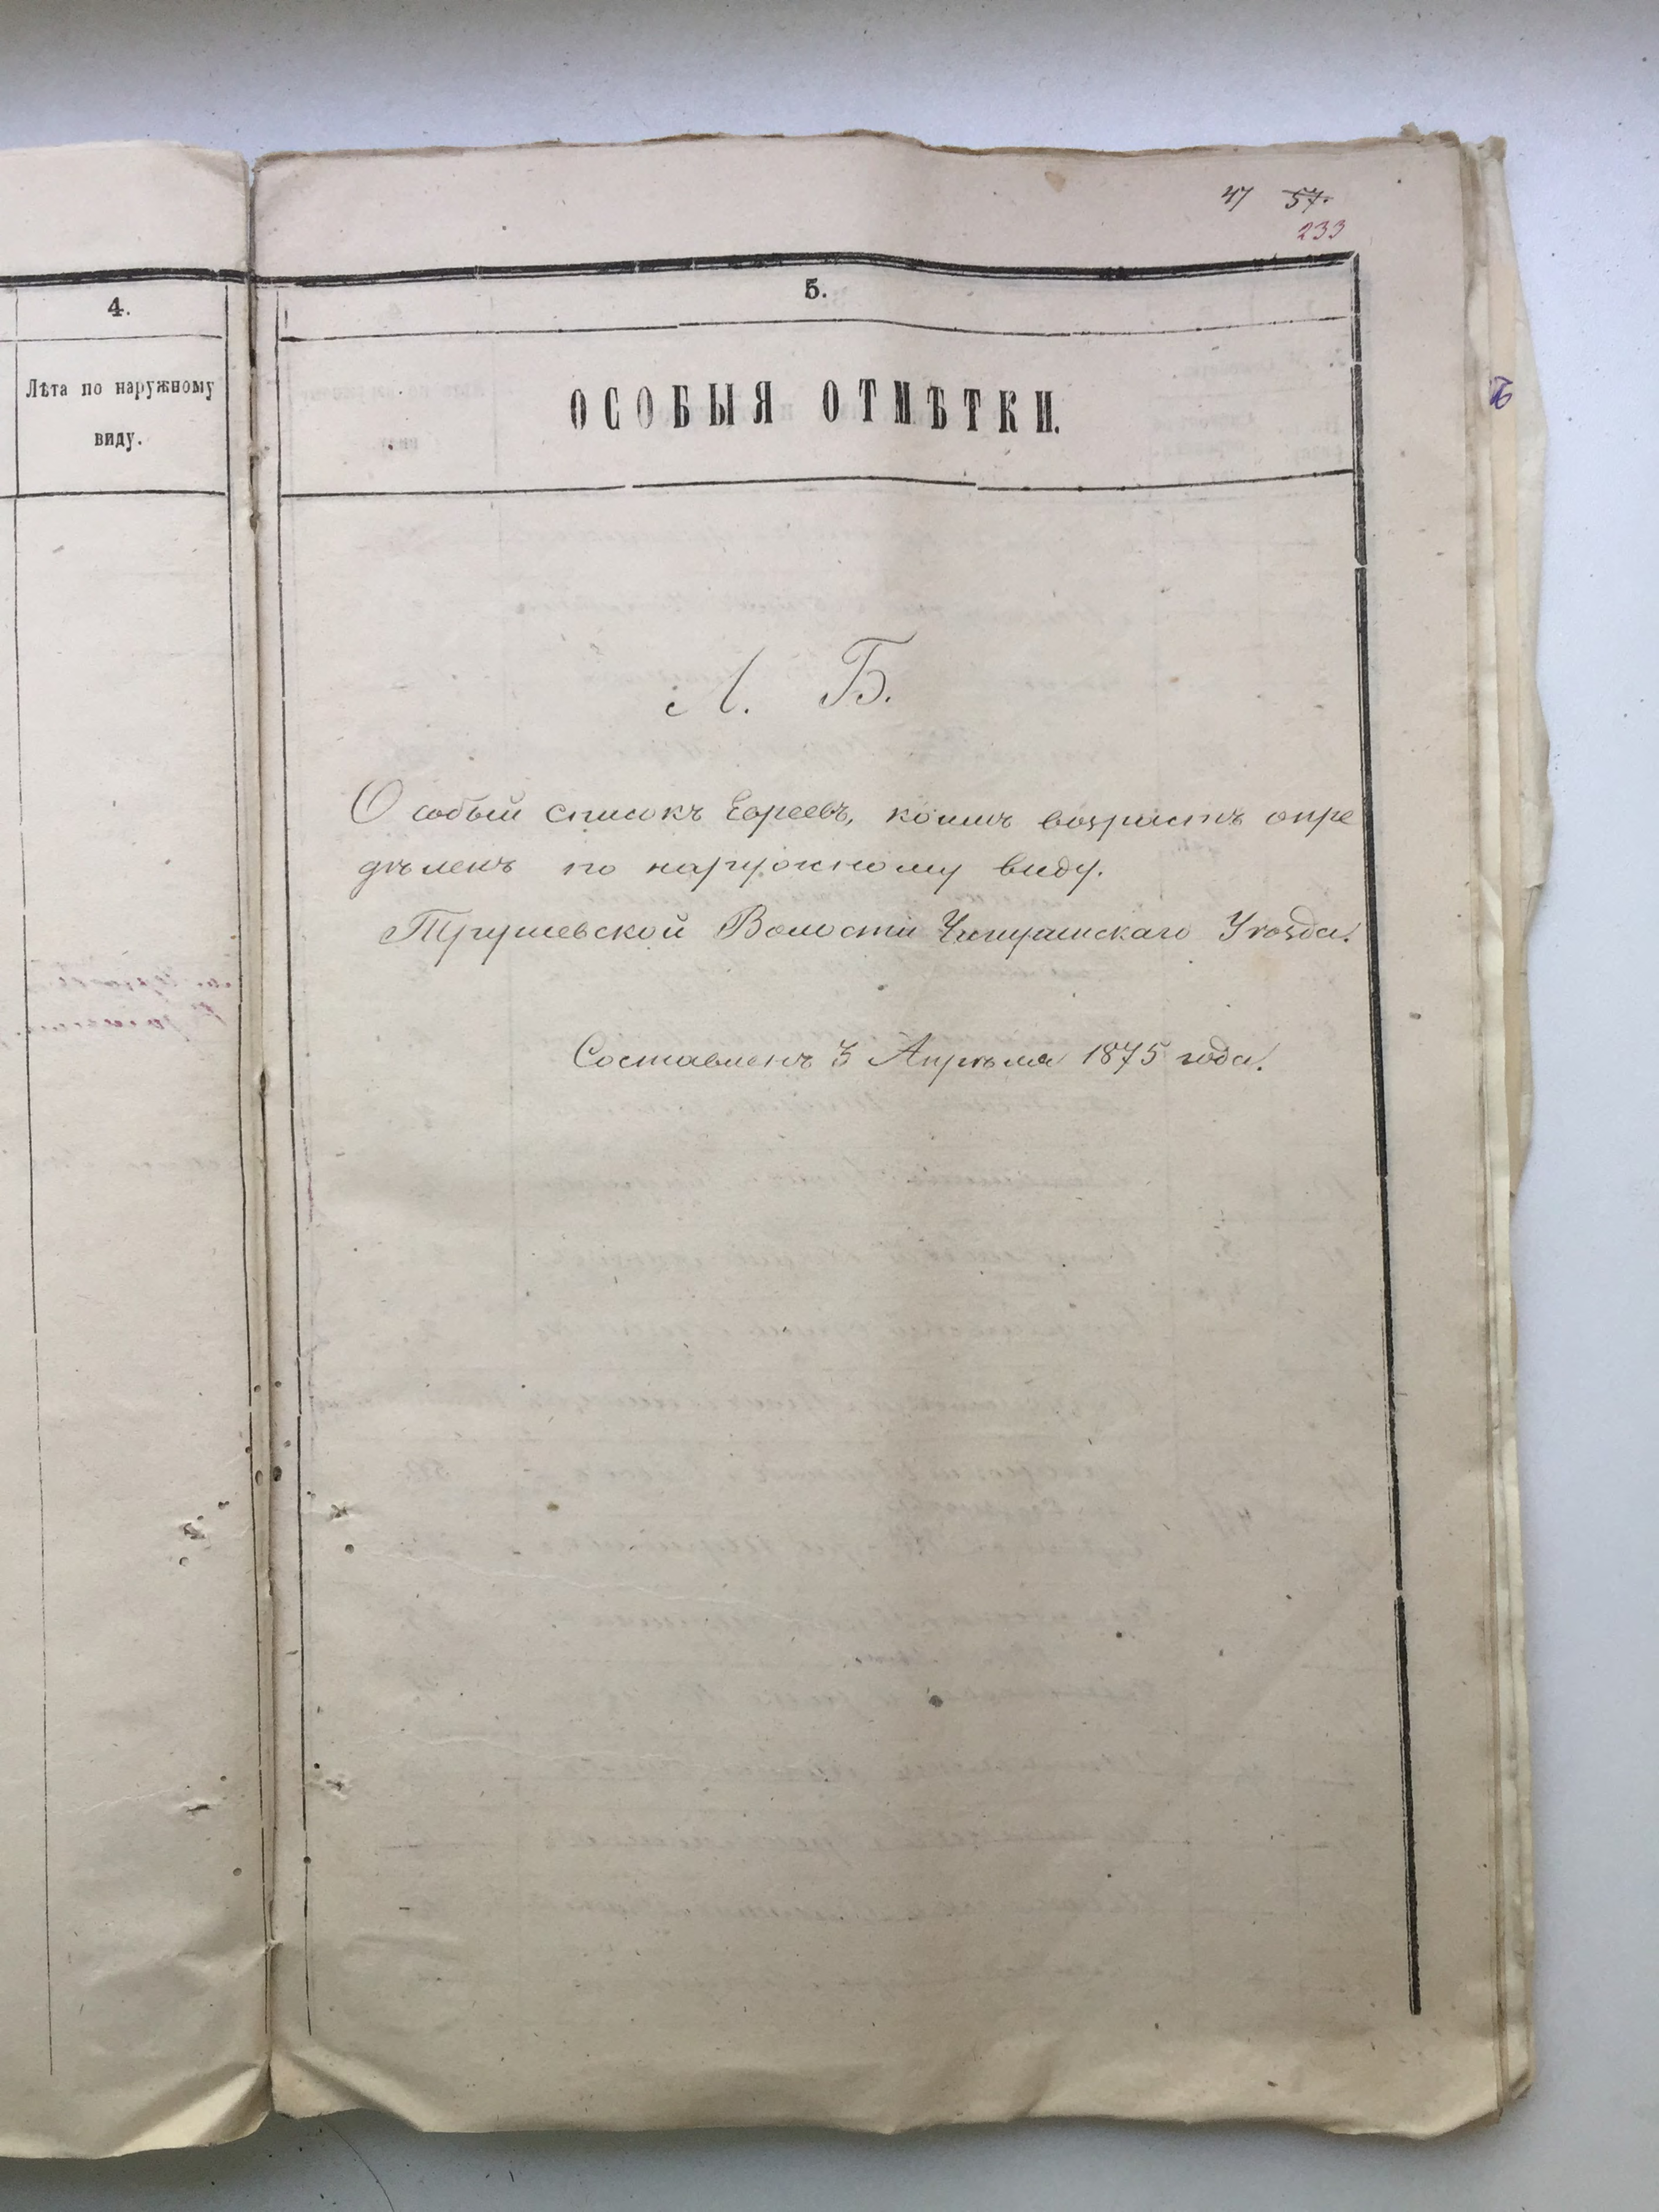 47 57.
233
4.
Лѣта по наружному
виду.
5.
ОСОБЫЯ ОТМѢТКИ.
Л. Б.
Особый списокъ Евреевъ, коимъ возрастъ опре
дѣленъ по наружному виду.
Трушевской Волости Чигиринскаго Уѣзда.
Составленъ 3 Апрѣля 1875 года.